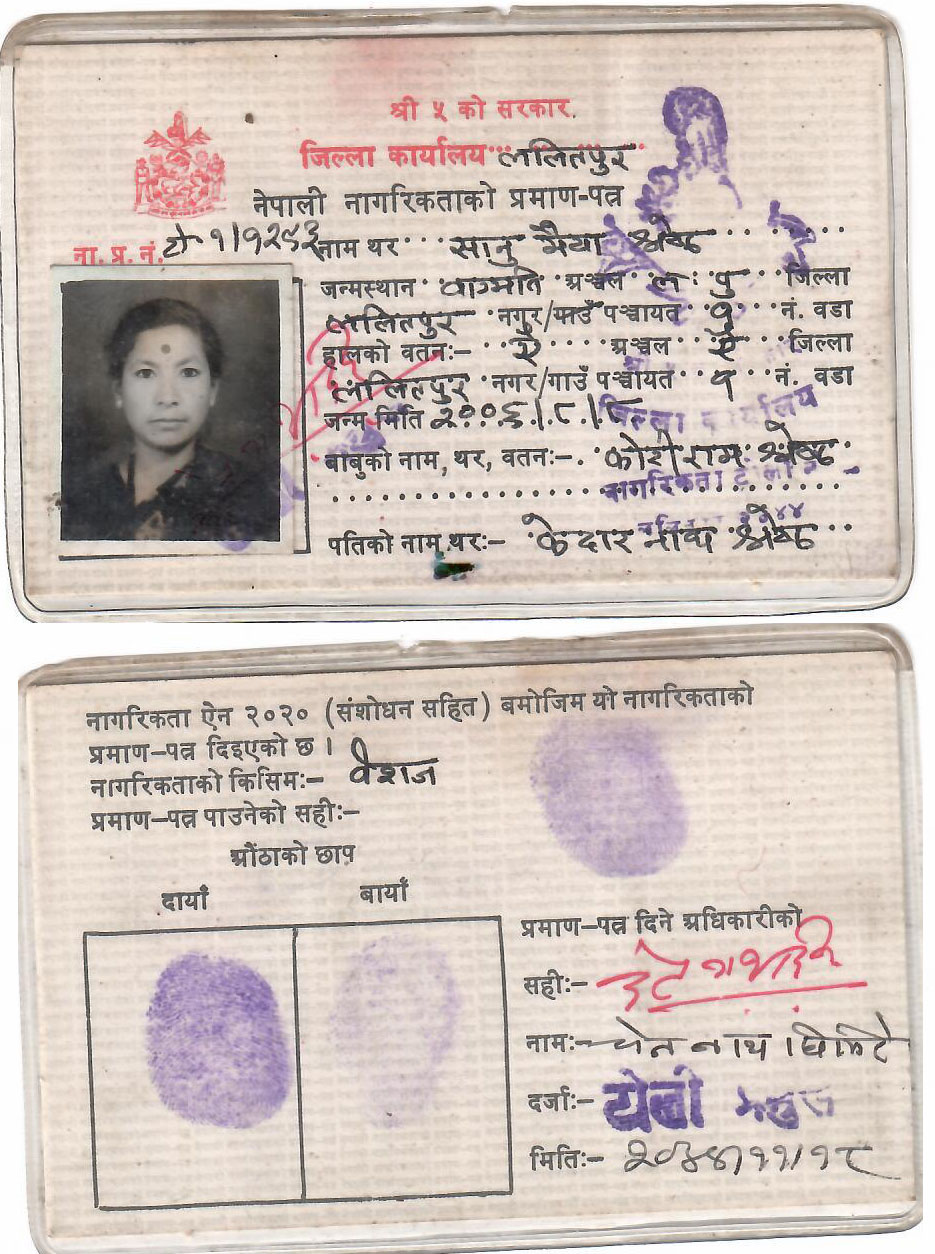 श्री ५ को सरकार
जिल्ला कार्यालय ललितपुर
नेपाली नागरिकताको प्रमाण-पत्र
ना. प्र. नं. नाम थर सानु मैया श्रेष्ठ
जन्मस्थान वाग्मति अञ्चल ल. पु जिल्ला
ललितपुर नगर/गाउँ पञ्चायत नं. वडा
हालको वतनः- ऐ अञ्चल ऐ जिल्ला
ललितपुर नगर/गाउँ पञ्चायत नं. वडा
जन्म मिति
जिल्ला कार्यालय
बाबुको नाम, थर, वतनः- श्रेष्ठ
नागरिकता टोली
पतिको नाम थरः- केदार श्रेष्ठ
नागरिकता ऐन २०२० (संशोधन सहित) बमोजिम यो नागरिकताको
प्रमाण-पत्र दिइएको छ ।
नागरिकताको किसिमः- वंशज
प्रमाण-पत्र पाउनेको सहीः-
औंठाको छाप
दायाँ बायाँ
प्रमाण-पत्र दिने अधिकारीको
सहीः-
नामः- नाथ
दर्जाः- टोली
मितिः- २०४४।११।१८